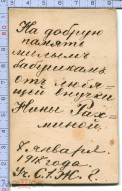 На добрую
память
милымъ
бабушкамъ
отъ любя-
щей внучки
Нины Рах-
миной.
7 января
1918 года.